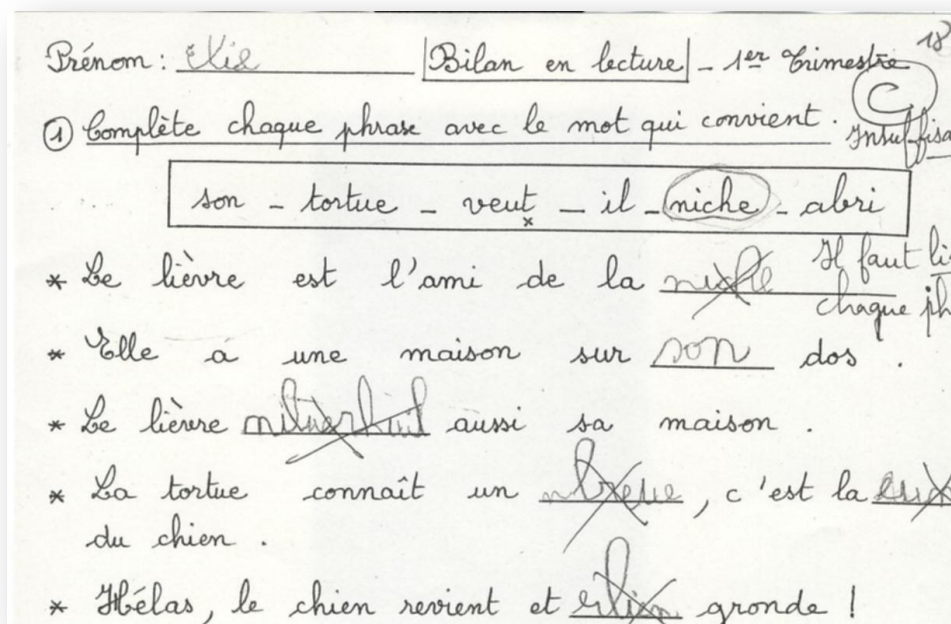 Prénom : Elie Bilan en lecture - 1er Trimestre 18
C
① Complète chaque phrase avec le mot qui convient . Insuffisa
son - tortue - veut - il - niche - abri
* Le lièvre est l'ami de la niche Il faut li
chaque ph
* Elle a une maison sur son dos .
* Le lièvre aussi sa maison .
* La tortue connaît un , c'est la
du chien .
* Hélas, le chien revient et gronde !